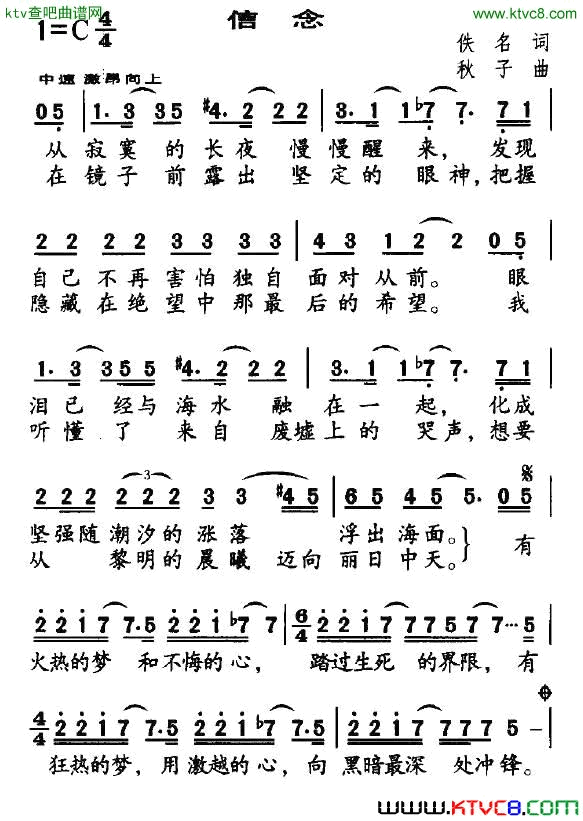 ktv查吧曲谱网
www.ktvc8.com
信 念
1=C 4/4
佚 名 词
秋 子 曲
中速 激昂向上
0 5 | 1. 3 3 5 #4. 2 2 2 | 3. 1 1 b7 7. 7 1 |
从 寂 寞 的 长 夜 慢 慢 醒 来, 发现
在 镜 子 前 露 出 坚 定 的 眼 神, 把握
2 2 2 2 3 3 3 3 | 4 3 1 2 2 0 5 |
自己 不再 害怕 独自 面对 从前。 眼
隐藏 在绝 望中 那最 后的 希望。 我
1. 3 3 5 5 #4. 2 2 2 | 3. 1 1 b7 7. 7 1 |
泪已 经与 海水 融 在 一 起, 化成
听懂 了 来自 废墟 上的 哭声, 想要
2 2 2 2 2 2 3 3 #4 5 | 6 5 4 5 5. 0 5 |
3
坚强随 潮汐的 涨落 浮出 海面。 有
从 黎明的 晨曦 迈向 丽日 中天。
2 2 1 7 7. 5 2 2 1 b7 7 | 6/4 2 2 1 7 7 7 5 7 7··· 5 |
火热的梦 和不悔的心, 踏过生死 的界限, 有
4/4 2 2 1 7 7. 5 2 2 1 b7 7. 5 | 2 2 1 7 7 7 7 5 – |
狂热的梦, 用激越的心, 向 黑暗最深 处冲锋。
www.KTVC8.com